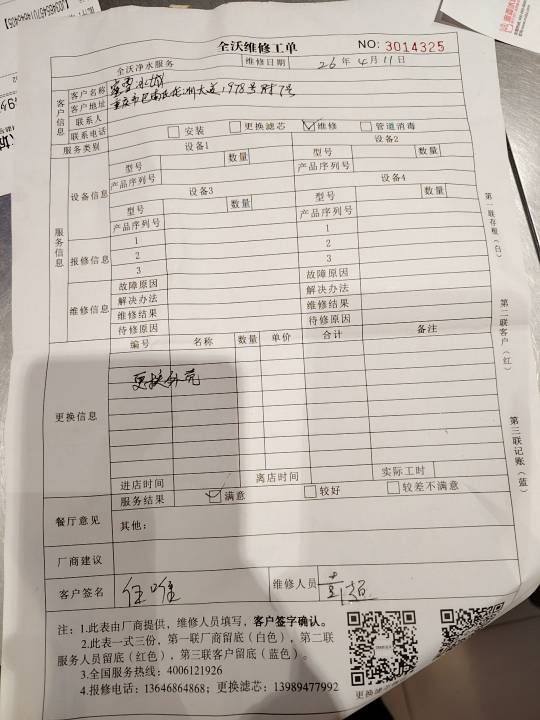 全沃维修工单
NO: 3014325
全沃净水服务 维修日期 26 年 4 月 11 日
客户信息
客户名称 蜜雪冰城
客户地址 重庆市巴南区龙洲大道1978号附7号
联系人
联系电话
服务类别 安装 更换滤芯 维修 管道消毒
服务信息
设备信息
设备1 设备2
型号 数量 型号 数量
产品序列号 产品序列号
设备3 设备4
型号 数量 型号 数量
产品序列号 产品序列号
报修信息
1 1
2 2
3 3
维修信息
故障原因 故障原因
解决办法 解决办法
维修结果 维修结果
待修原因 待修原因
更换信息
编号 名称 数量 单价 合计 备注
更换外壳
进店时间 离店时间 实际工时
餐厅意见
服务结果 满意 较好 较差不满意
其他：
厂商建议
客户签名 维修人员
注：1.此表由厂商提供，维修人员填写，客户签字确认。
2.此表一式三份，第一联厂商留底（白色），第二联
服务人员留底（红色），第三联客户留底（蓝色）。
3.全国服务热线：4006121926
4.报修电话：13646864868；更换滤芯：13989477992
更换滤
第一联存根（白）
第二联客户（红）
第三联记账（蓝）